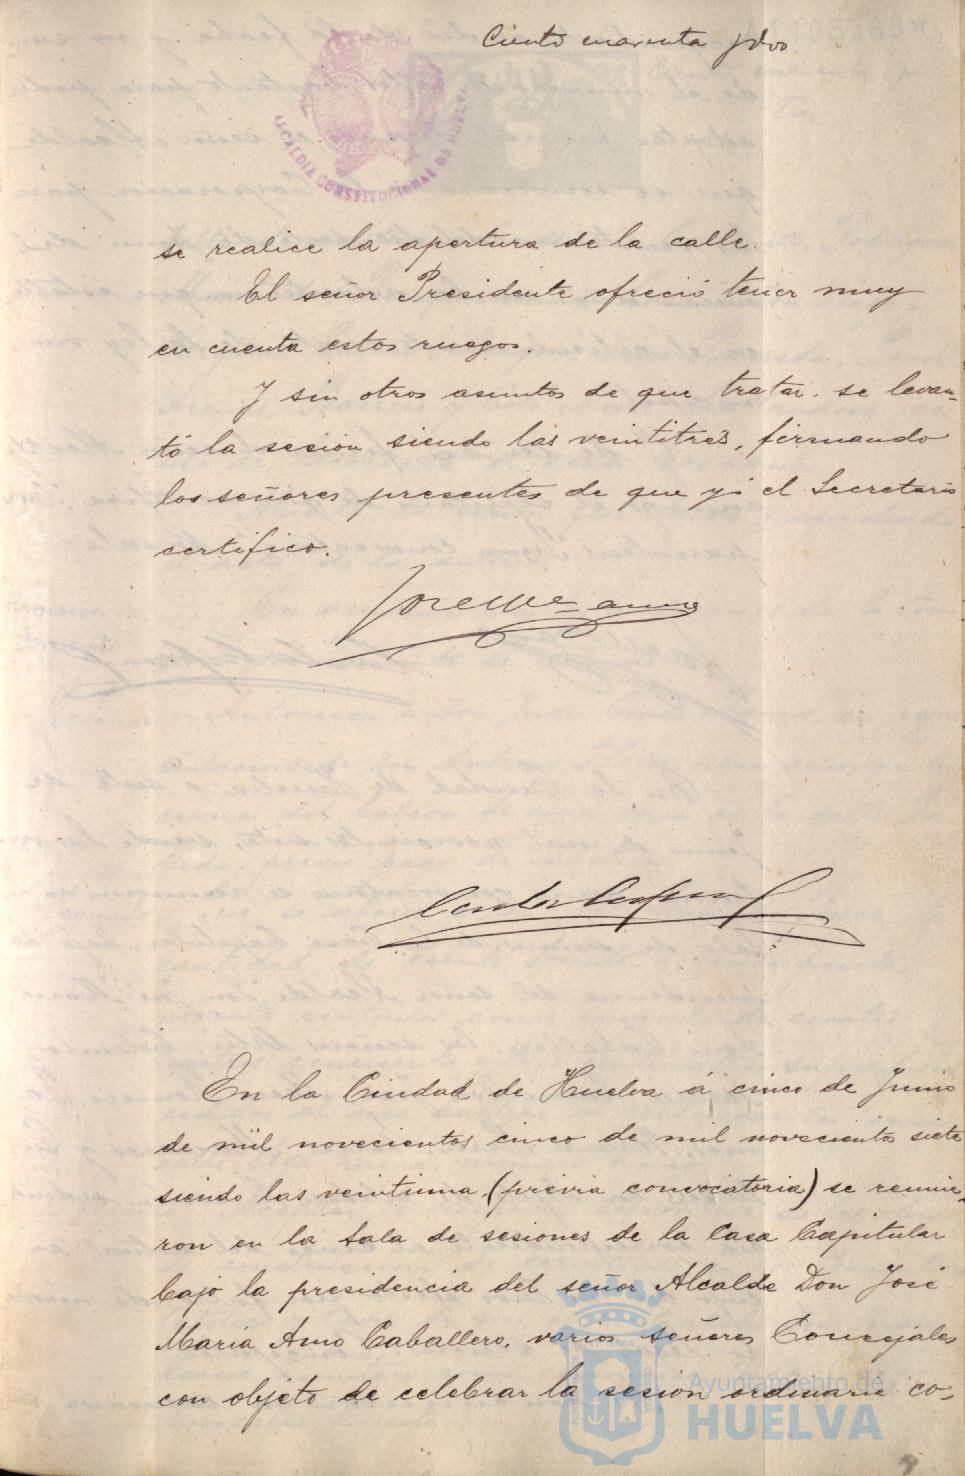 Ciento cuarenta y dos
ALCALDIA CONSTITUCIONAL DE HUELVA
se realice la apertura de la calle.
El señor Presidente ofreció tener muy
en cuenta estos ruegos.
Y sin otros asuntos de que tratar. se levan-
tó la sesion siendo las veintitres, firmando
los señores presentes de que yó el Secretario
certifico.
En la Ciudad de Huelva á cinco de Junio
de mil novecientos cinco de mil novecientos siete
siendo las veintiuna (previa convocatoria) se reunie-
ron en la Sala de sesiones de la Casa Capitular
bajo la presidencia del señor Alcalde Don José
Maria Amo Caballero, varios señores Concejales
con objeto de celebrar la sesion ordinaria co-
Ayuntamiento de
HUELVA